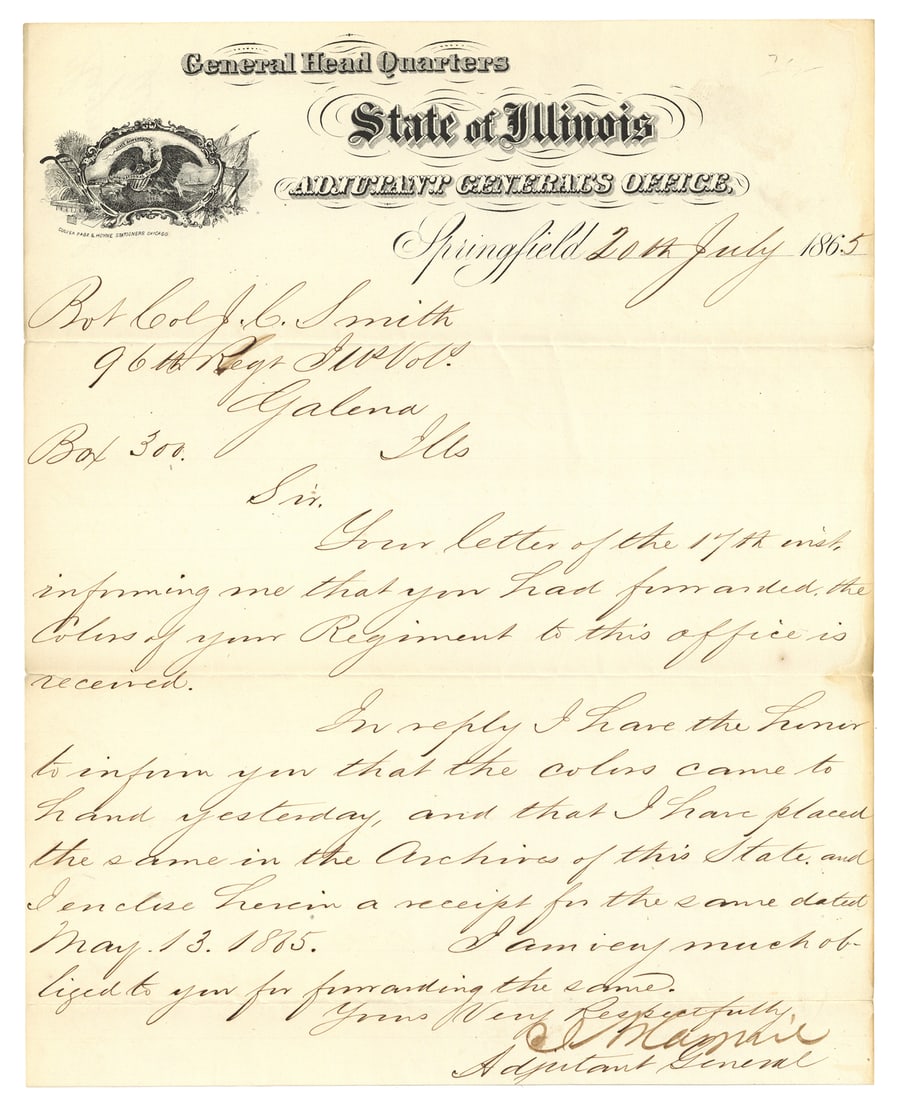 General Head Quarters
State of Illinois
ADJUTANT GENERAL'S OFFICE,
CULVER PAGE & HOYNE STATIONERS CHICAGO
Springfield 20th July 1865
Bvt Col J. C. Smith
96th Regt Ills Vols.
Galena
Box 300. Ills
Sir.
Your letter of the 17th inst.
informing me that you had forwarded the
Colors of your Regiment to this office is
received.
In reply I have the honor
to inform you that the colors came to
hand yesterday, and that I have placed
the same in the Archives of this State. and
I enclose herein a receipt for the same dated
May. 13. 1865. I am very much ob-
liged to you for forwarding the same.
Yours Very Respectfully,
Adjutant General